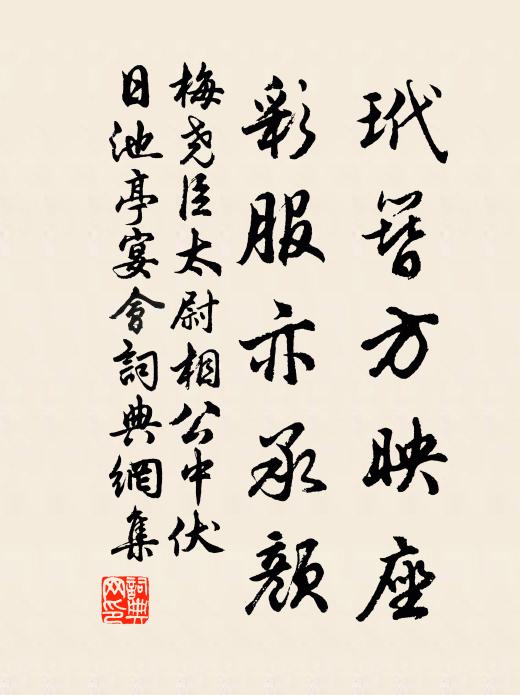 玳簪方映座
彩服亦承顔
梅尧臣太尉相公中伏
日池亭宴會詞典網集
詞典
网印